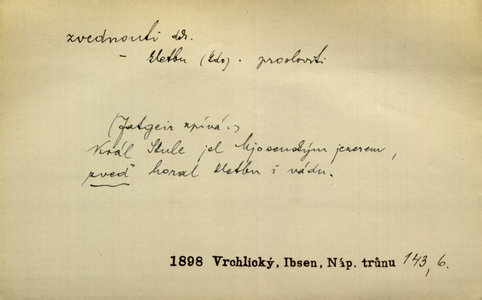 zvednouti dok.
– kletbu (kdo) • prosloviti
(Jatgeir zpívá:)
Král Skule jel Mjosenským jezerem,
zved' horal kletbu i vádu.
1898 Vrchlický, Ibsen, Náp. trůnu 143, 6.